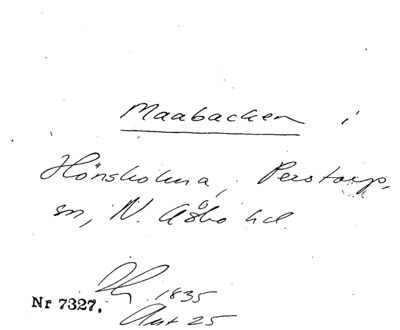 Maabacken i
Hönsholma, Perstorps
sn, N. Åsbo hd.
Lh 1835
Nr 7327. Akt 25